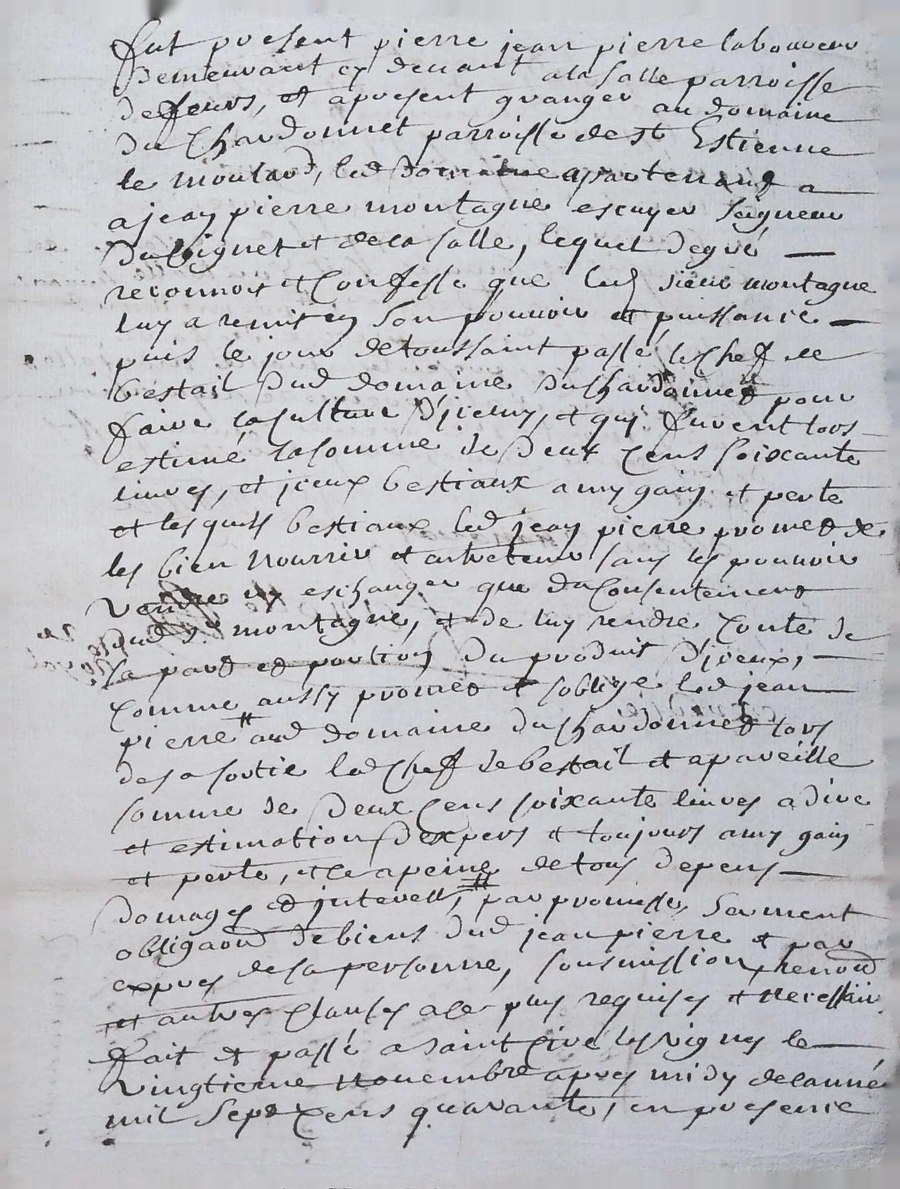 fut present pierre jean pierre laboureur
demeurant cy devant a la salle parroisse
de feurs, et apresent granger au domaine
du Chardonnet parroisse de st Estienne
le moulard, led domaine apartenant a
a jean pierre montagne escuyer seigneur
du Pignet et de la salle, lequel de gré
reconnois et Confesse que led sieur montagne
luy a remis en son pouvoir et puissance
puis le jour de toussaint passé, le Chef de
bestail dud domaine du Chardonnet pour
faire la culture d'jceluy, et qui furent lors
estimé la somme de Deux Cens soixante
livres, et jceux bestiaux a my gain et perte
et lesquels bestiaux led jean pierre promet de
les bien nourrir et entretenir sans les pouvoir
vendre ny eschanger que du Consentement
dud sr montagne, et de luy rendre Conte de
la part et portion du produit d'jceux,
Comme aussy promet et s'oblige led jean
pierre aud domaine du Chardonnet lors
de sa sortie led Chef de bestail et a pareille
somme de Deux Cens soixante livres a dire
et estimation d'expers et toujours a my gain
et perte, et ce a peine de tous depens
domages et jnterests, par promesse, serment
obligaon de biens dud jean pierre et par
expres de sa personne, sousmission, renon
et autres Clauses a ce plus requises et necessair
fait et passé a saint Cire les vignes le
vingtieme novembre apres midy de l'année
mil sept Cens quarante, en presence